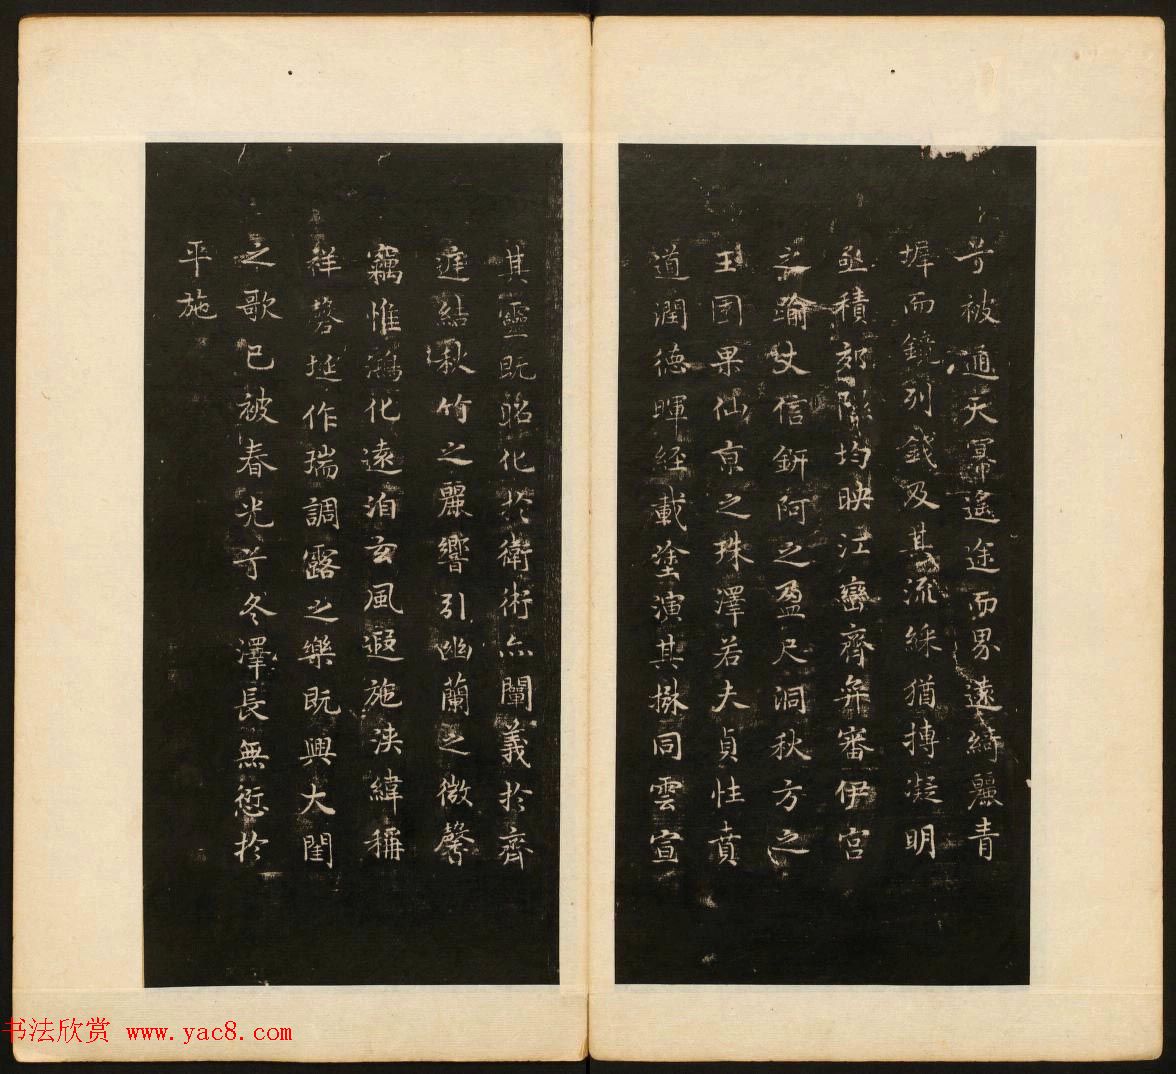 兮被通天冪遙途而界遠綺麗青
墀而鏡列錢及其流綵猶摶凝明
亟積郊隰均映江巒齊弇審伊宮
之踰丈信鈃阿之盈尺洞秋方之
玉園果仙京之珠澤若夫貞性賁
道潤德暉經載塗演其掀同雲宣
其靈既昭化於衛術亦闡義於齊
逰結秋竹之麗響引幽蘭之微馨
竊惟鴻化遠洎玄風遐施浹緯稱
祥磬挻作瑞調露之樂既興大閏
之歌已被春光兮冬澤長無愆於
平施
书法欣赏 www.yac8.com